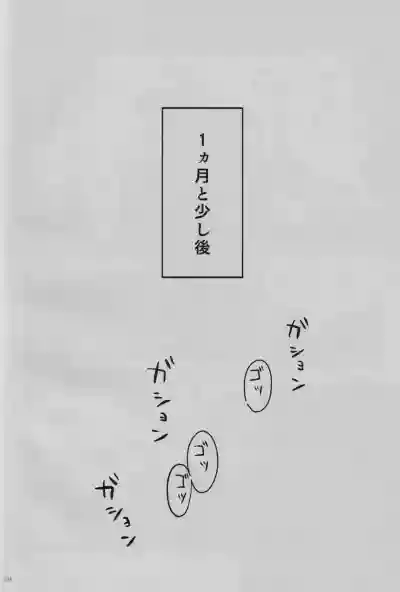 1ヵ月と少し後
ガション
ゴッ
ガション
ゴッ
ゴッ
ガション